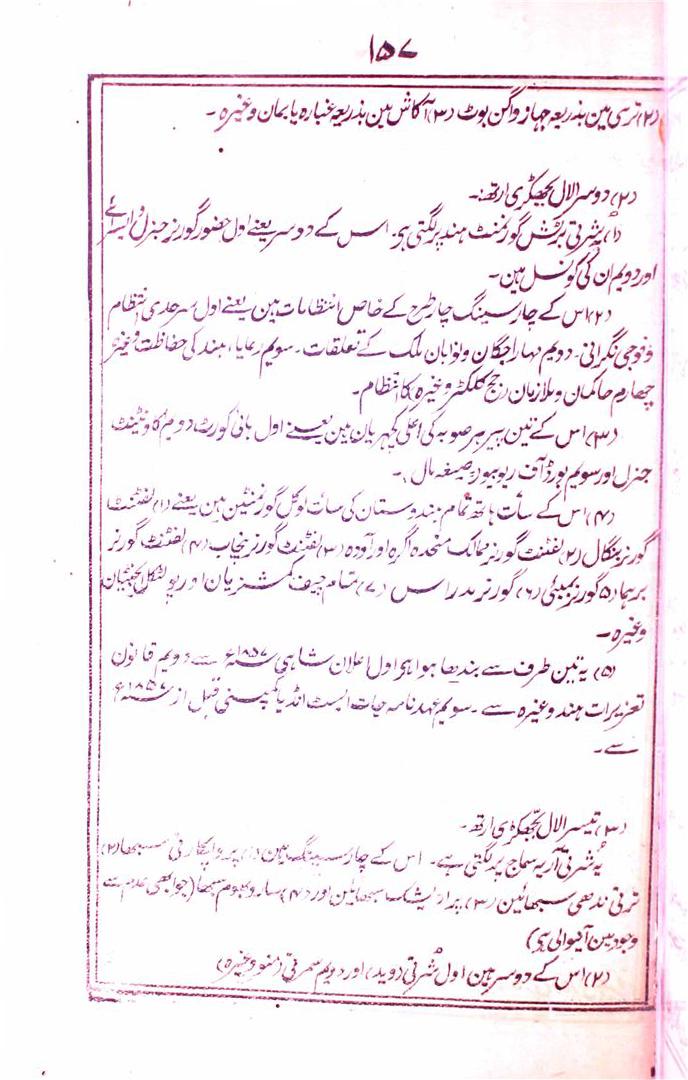 ۱۵۷
(۲) تری مین بذریعہ جہاز واگن بوٹ (۳) آکاش مین بذریعہ غبارہ یا بمان وغیرہ۔
(۲) دوسرا لال بجھکڑی ارتھ:۔
(۱) یہ شرتی برٹش گورنمنٹ ہند پر لگتی ہی۔ اس کے دو سر یعنے اول حضور گورنر جنرل وایسرائے
اور دویم ان کی کونسل ہین۔
(۲) اس کے چار سینگ چار طرح کے خاص انتظامات ہین یعنے اول سرحدی انتظام
و فوجی نگرانی۔ دویم مہاراجگان و نوابان ملک کے تعلقات۔ سویم رعایاء ہند کی حفاظت وغیرہ
چہارم حاکمان و ملازمان جج کلکٹر وغیرہ کا انتظام۔
(۳) اس کے تین پیر ہر صوبہ کی اعلٰی کچہریان ہین یعنے اول ہائی کورٹ دویم اکونٹینٹ
جنرل اور سویم بورڈ آف ریونیو (صیغہ مال)۔
(۴) اس کے سات ہاتھ تمام ہندوستان کی سات لوکل گورنمنٹین ہین یعنے (۱) لفٹنٹ
گورنر بنگال (۲) لفٹنٹ گورنر ممالک متحدہ آگرہ اور آودہ (۳) لفٹنٹ گورنر پنجاب (۴) لفٹنٹ گورنر
برہما (۵) گورنر بمبئی (۶) گورنر مدراس (۷) تمام چیف کمشنریان اور پولٹیکل ایجنٹیان
وغیرہ۔
(۵) یہ تین طرف سے بندھا ہوا ہی اول اعلان شاہی سنہ ۱۸۵۷ء سے دویم قانون
تعزیرات ہند وغیرہ سے۔ سویم عہدنامہ جات ایسٹ انڈیا کمپنی قبل از سنہ ۱۸۵۷ء
سے۔
(۳) تیسرا لال بجھکڑی ارتھ۔
یہ شرتی آریہ سماج پر لگتی ہے۔ اس کے چار سینگ ہین (۱) پروپکارنی سبھا (۲)
پرتی ندھی سبھائین (۳) پرادیشک سبھائین اور (۴) ساروبھوم سبھا (جو ابھی عدم سے
وجود مین آنیوالی ہی)
(۲) اس کے دو سر ہین اول شرتی (وید) اور دویم سمرتی (منو وغیرہ)